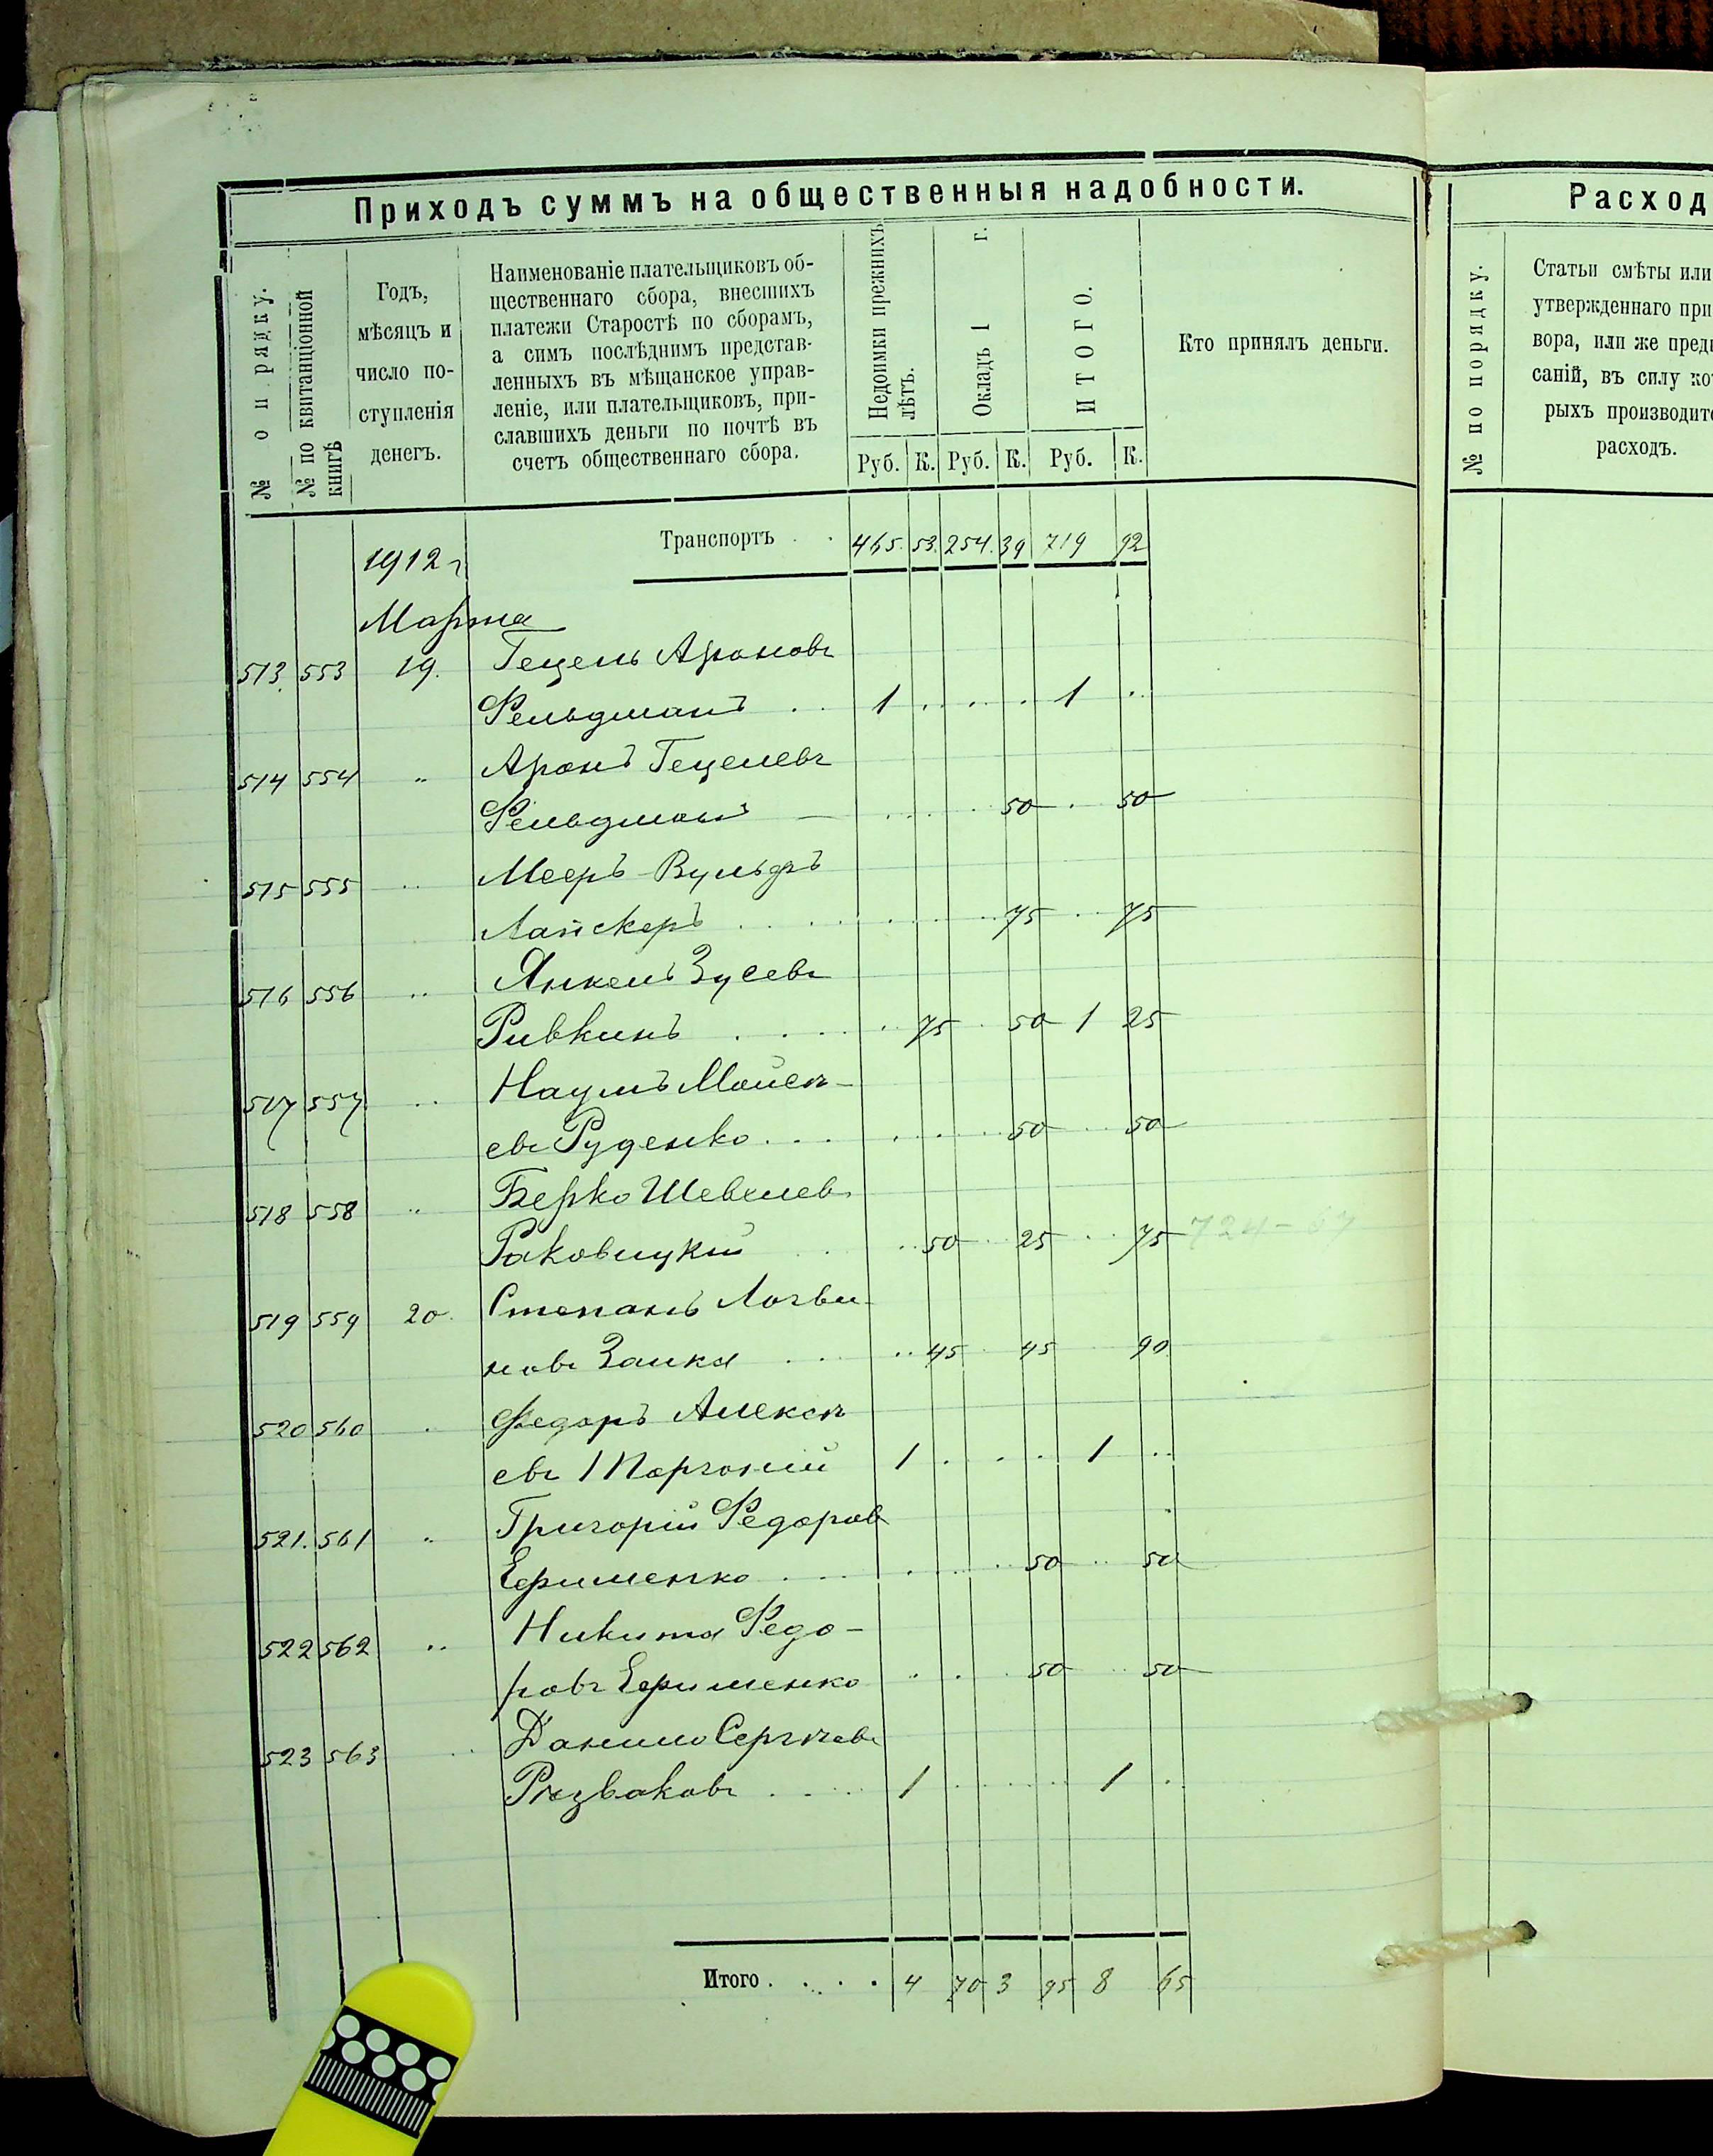 Приходъ суммъ на общественныя надобности.
№ по порядку.
№ по квитанціонной
книгѣ
Годъ,
мѣсяцъ и
число по-
ступленія
денегъ.
Наименованіе плательщиковъ об-
щественнаго сбора, внесшихъ
платежи Старостѣ по сборамъ,
а симъ послѣднимъ представ-
ленныхъ въ мѣщанское управ-
леніе, или плательщиковъ, при-
славшихъ деньги по почтѣ въ
счетъ общественнаго сбора.
Недоимки прежнихъ
лѣтъ.
Окладъ 1 г.
ИТОГО.
Кто принялъ деньги.
Руб. К. Руб. К. Руб. К.
Транспортъ . . 465. 53. 254. 39 719 92
1912 г
Марта
513. 553 19. Гецель Ароновъ
Фельдманъ . . 1 . . . . 1 ..
514 554 „ Аронъ Гецелевъ
Фельдманъ — . . . . 50 . 50
515 555 .. Мееръ-Вульфъ
Лайскеръ . . . . 75 .. 75
516 556 .. Янкель Зусевъ
Ривкинъ . . . .. 75 . 50 1 25
517 557 .. Наумъ Моисе-
евъ Руденко . . . . . . 50 .. 50
518 558 .. Берко Шевелевъ
Раковицкій . .. 50 .. 25 . .. 75 724-67
519 559 20. Степанъ Логви-
новъ Заика . . . .. 45 . 45 90
520 560 . Федоръ Алексѣ
евъ Поргоній 1 . . . 1 ..
521. 561 „ Григорій Федоровъ
Ефименко . . . . . .. 50 .. 50
522 562 .. Никита Федо-
ровъ Ефименко .. . . 50 .. 50
523 563 .. Данило Сергѣевъ
Рѣзваковъ . . . 1 . . . . . 1 .
Итого . . . . 4 70 3 95 8 65
Расход
№ по порядку.
Статьи смѣты или
утвержденнаго при
вора, или же пред
саній, въ силу ко
рыхъ производит
расходъ.